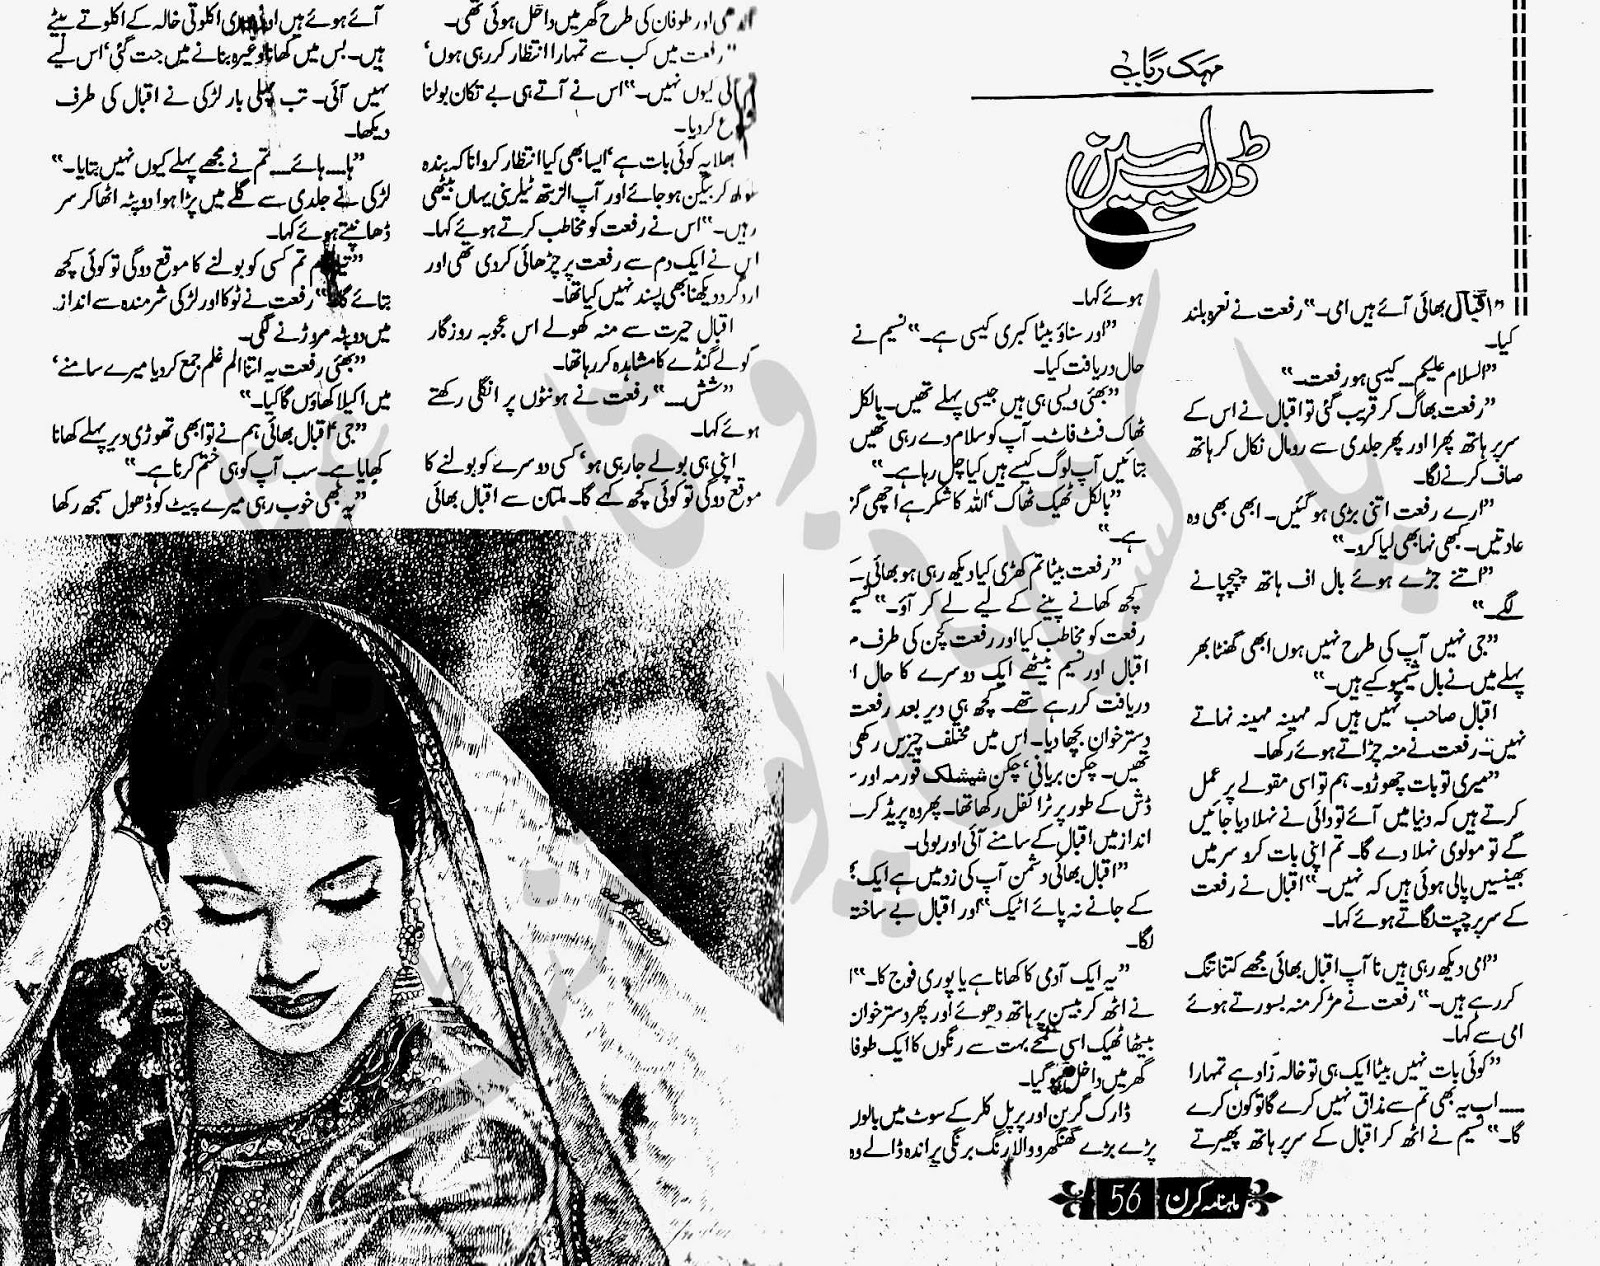 مہک رباب
ڈراپ سین
”اقبال بھائی آئے ہیں امی۔“ رفعت نے نعرہ بلند
کیا۔
”السلام علیکم۔ کیسی ہو رفعت۔“
”رفعت بھاگ کر قریب گئی تو اقبال نے اس کے
سر پر ہاتھ پھرا اور پھر جلدی سے رومال نکال کر ہاتھ
صاف کرنے لگا۔
”ارے رفعت اتنی بڑی ہو گئیں۔ ابھی بھی وہ
عادتیں۔ کبھی نہا بھی لیا کرو۔“
”اتنے جڑے ہوئے بال اف ہاتھ چپچپانے
لگے۔“
”جی نہیں آپ کی طرح نہیں ہوں ابھی گھنٹا بھر
پہلے میں نے بال شیمپو کیے ہیں۔“
اقبال صاحب نہیں ہیں کہ مہینہ مہینہ نہاتے
نہیں۔ رفعت نے منہ چڑاتے ہوئے رکھا۔
”میری تو بات چھوڑو۔ ہم تو اسی مقولے پر عمل
کرتے ہیں کہ دنیا میں آئے تو دائی نے نہلا دیا جائیں
گے تو مولوی نہلا دے گا۔ تم اپنی بات کرو سر میں
بھینسیں پالی ہوئی ہیں کہ نہیں۔“ اقبال نے رفعت
کے سر پر چپت لگاتے ہوئے کہا۔
”امی دیکھ رہی ہیں نا آپ اقبال بھائی مجھے کتنا تنگ
کر رہے ہیں۔“ رفعت نے مڑ کر منہ بسورتے ہوئے
امی سے کہا۔
”کوئی بات نہیں بیٹا ایک ہی تو خالہ زاد ہے تمہارا
۔۔۔ اب یہ بھی تم سے مذاق نہیں کرے گا تو کون کرے
گا۔“ نسیم نے اٹھ کر اقبال کے سر پر ہاتھ پھیرتے
ہوئے کہا۔
”اور سناؤ بیٹا کبریٰ کیسی ہے۔“ نسیم نے
حال دریافت کیا۔
”بھئی ویسی ہی ہیں جیسی پہلے تھیں۔ بالکل
ٹھاک فٹ فاٹ۔ آپ کو سلام دے رہی تھیں
بتائیں آپ لوگ کیسے ہیں کیا چل رہا ہے۔“
”بالکل ٹھیک ٹھاک‘ اللہ کا شکر ہے اچھی گز
ہے۔“
”رفعت بیٹا تم کھڑی کیا دیکھ رہی ہو بھائی
کچھ کھانے پینے کے لیے لے کر آؤ۔“ نسیم
رفعت کو مخاطب کیا اور رفعت کچن کی طرف
اقبال اور نسیم بیٹھے ایک دوسرے کا حال ا
دریافت کر رہے تھے۔ کچھ ہی دیر بعد رفعت
دسترخوان بچھا دیا۔ اس میں مختلف چیزیں رکھی
تھیں۔ چکن بریانی‘ چکن شیشلک قورمہ اور
ڈش کے طور پر ٹرائفل رکھا تھا۔ پھر وہ پریڈ کر
انداز میں اقبال کے سامنے آئی اور بولی۔
”اقبال بھائی دشمن آپ کی زد میں ہے ایک
کے جانے نہ پائے اٹیک“ اور اقبال بے ساختہ
لگا۔
”یہ ایک آدمی کا کھانا ہے یا پوری فوج کا۔“ ا
نے اٹھ کر بیسن پر ہاتھ دھوئے اور پھر دسترخوان
بیٹھا ٹھیک اسی لمحے بہت سے رنگوں کا ایک طوفا
گھر میں داخل ہو گیا۔
ڈارک گرین اور پرپل کلر کے سوٹ میں بالوں
پڑے بڑے گھنگھرو والا رنگ برنگی پراندہ ڈالے وہ
ماہنامہ کرن 56
آندھی اور طوفان کی طرح گھر میں داخل ہوئی تھی۔
”رفعت میں کب سے تمہارا انتظار کر رہی ہوں‘
آئی کیوں نہیں۔“ اس نے آتے ہی بے تکان بولنا
شروع کر دیا۔
بھلا یہ کوئی بات ہے‘ ایسا بھی کیا انتظار کروانا کہ بندہ
سوکھ کر بیگن ہو جائے اور آپ الزبتھ ٹیلر بنی یہاں بیٹھی
رہیں۔“ اس نے رفعت کو مخاطب کرتے ہوئے کہا۔
اس نے ایک دم سے رفعت پر چڑھائی کر دی تھی اور
اردگرد دیکھنا بھی پسند نہیں کیا تھا۔
اقبال حیرت سے منہ کھولے اس عجوبہ روزگار
گولے گنڈے کا مشاہدہ کر رہا تھا۔
”شش۔۔۔“ رفعت نے ہونٹوں پر انگلی رکھتے
ہوئے کہا۔
اپنی ہی بولے جا رہی ہو‘ کسی دوسرے کو بولنے کا
موقع دو گی تو کوئی کچھ کہے گا۔ ملتان سے اقبال بھائی
آئے ہوئے ہیں اور میری اکلوتی خالہ کے اکلوتے بیٹے
ہیں۔ بس میں کھانا وغیرہ بنانے میں جت گئی‘ اس لیے
نہیں آئی۔ تب پہلی بار لڑکی نے اقبال کی طرف
دیکھا۔
”ہا۔۔۔ ہائے۔۔۔ تم نے مجھے پہلے کیوں نہیں بتایا۔“
لڑکی نے جلدی سے گلے میں پڑا ہوا دوپٹہ اٹھا کر سر
ڈھانپتے ہوئے کہا۔
تم کسی کو بولنے کا موقع دو گی تو کوئی کچھ
بتائے گا۔“ رفعت نے ٹوکا اور لڑکی شرمندہ سے انداز
میں دوپٹہ مروڑنے لگی۔
”بھئی رفعت یہ اتنا الم غلم جمع کر دیا میرے سامنے‘
میں اکیلا کھاؤں گا کیا۔“
”جی اقبال بھائی ہم نے تو ابھی تھوڑی دیر پہلے کھانا
کھایا ہے۔ سب آپ کو ہی ختم کرنا ہے۔“
”یہ بھی خوب رہی میرے پیٹ کو ڈھول سمجھ رکھا